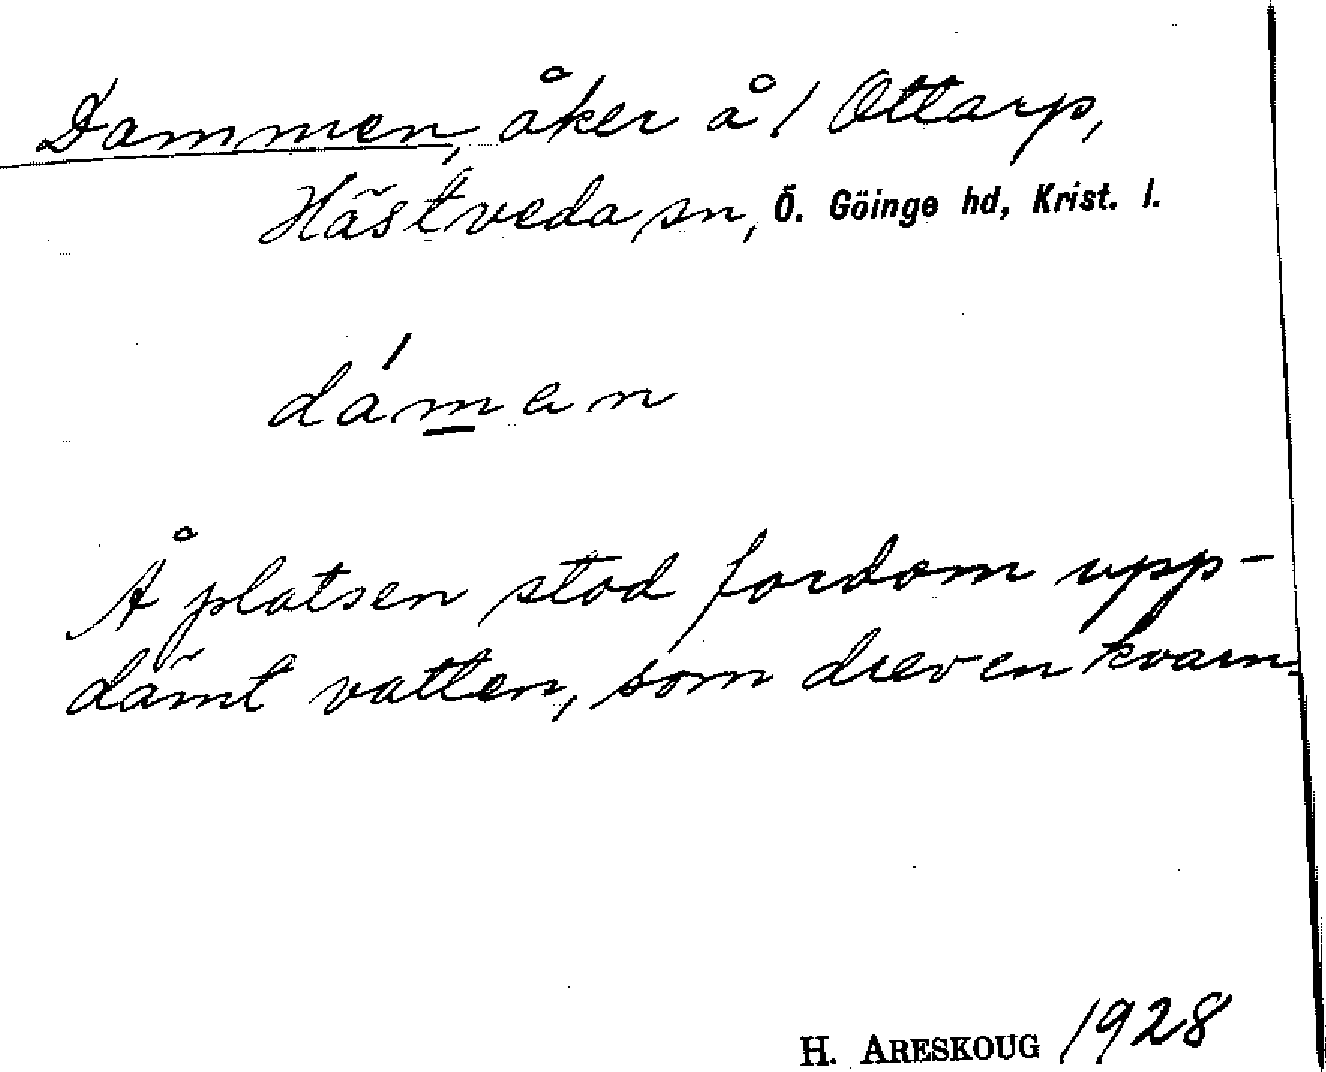 Dammen, åker å 1 Ottarp,
Hästveda sn, Ö. Göinge hd, Krist. l.
dáman
Å platsen stod fordom upp-
dämt vatten, som drev en kvarn.
H. ARESKOUG 1928